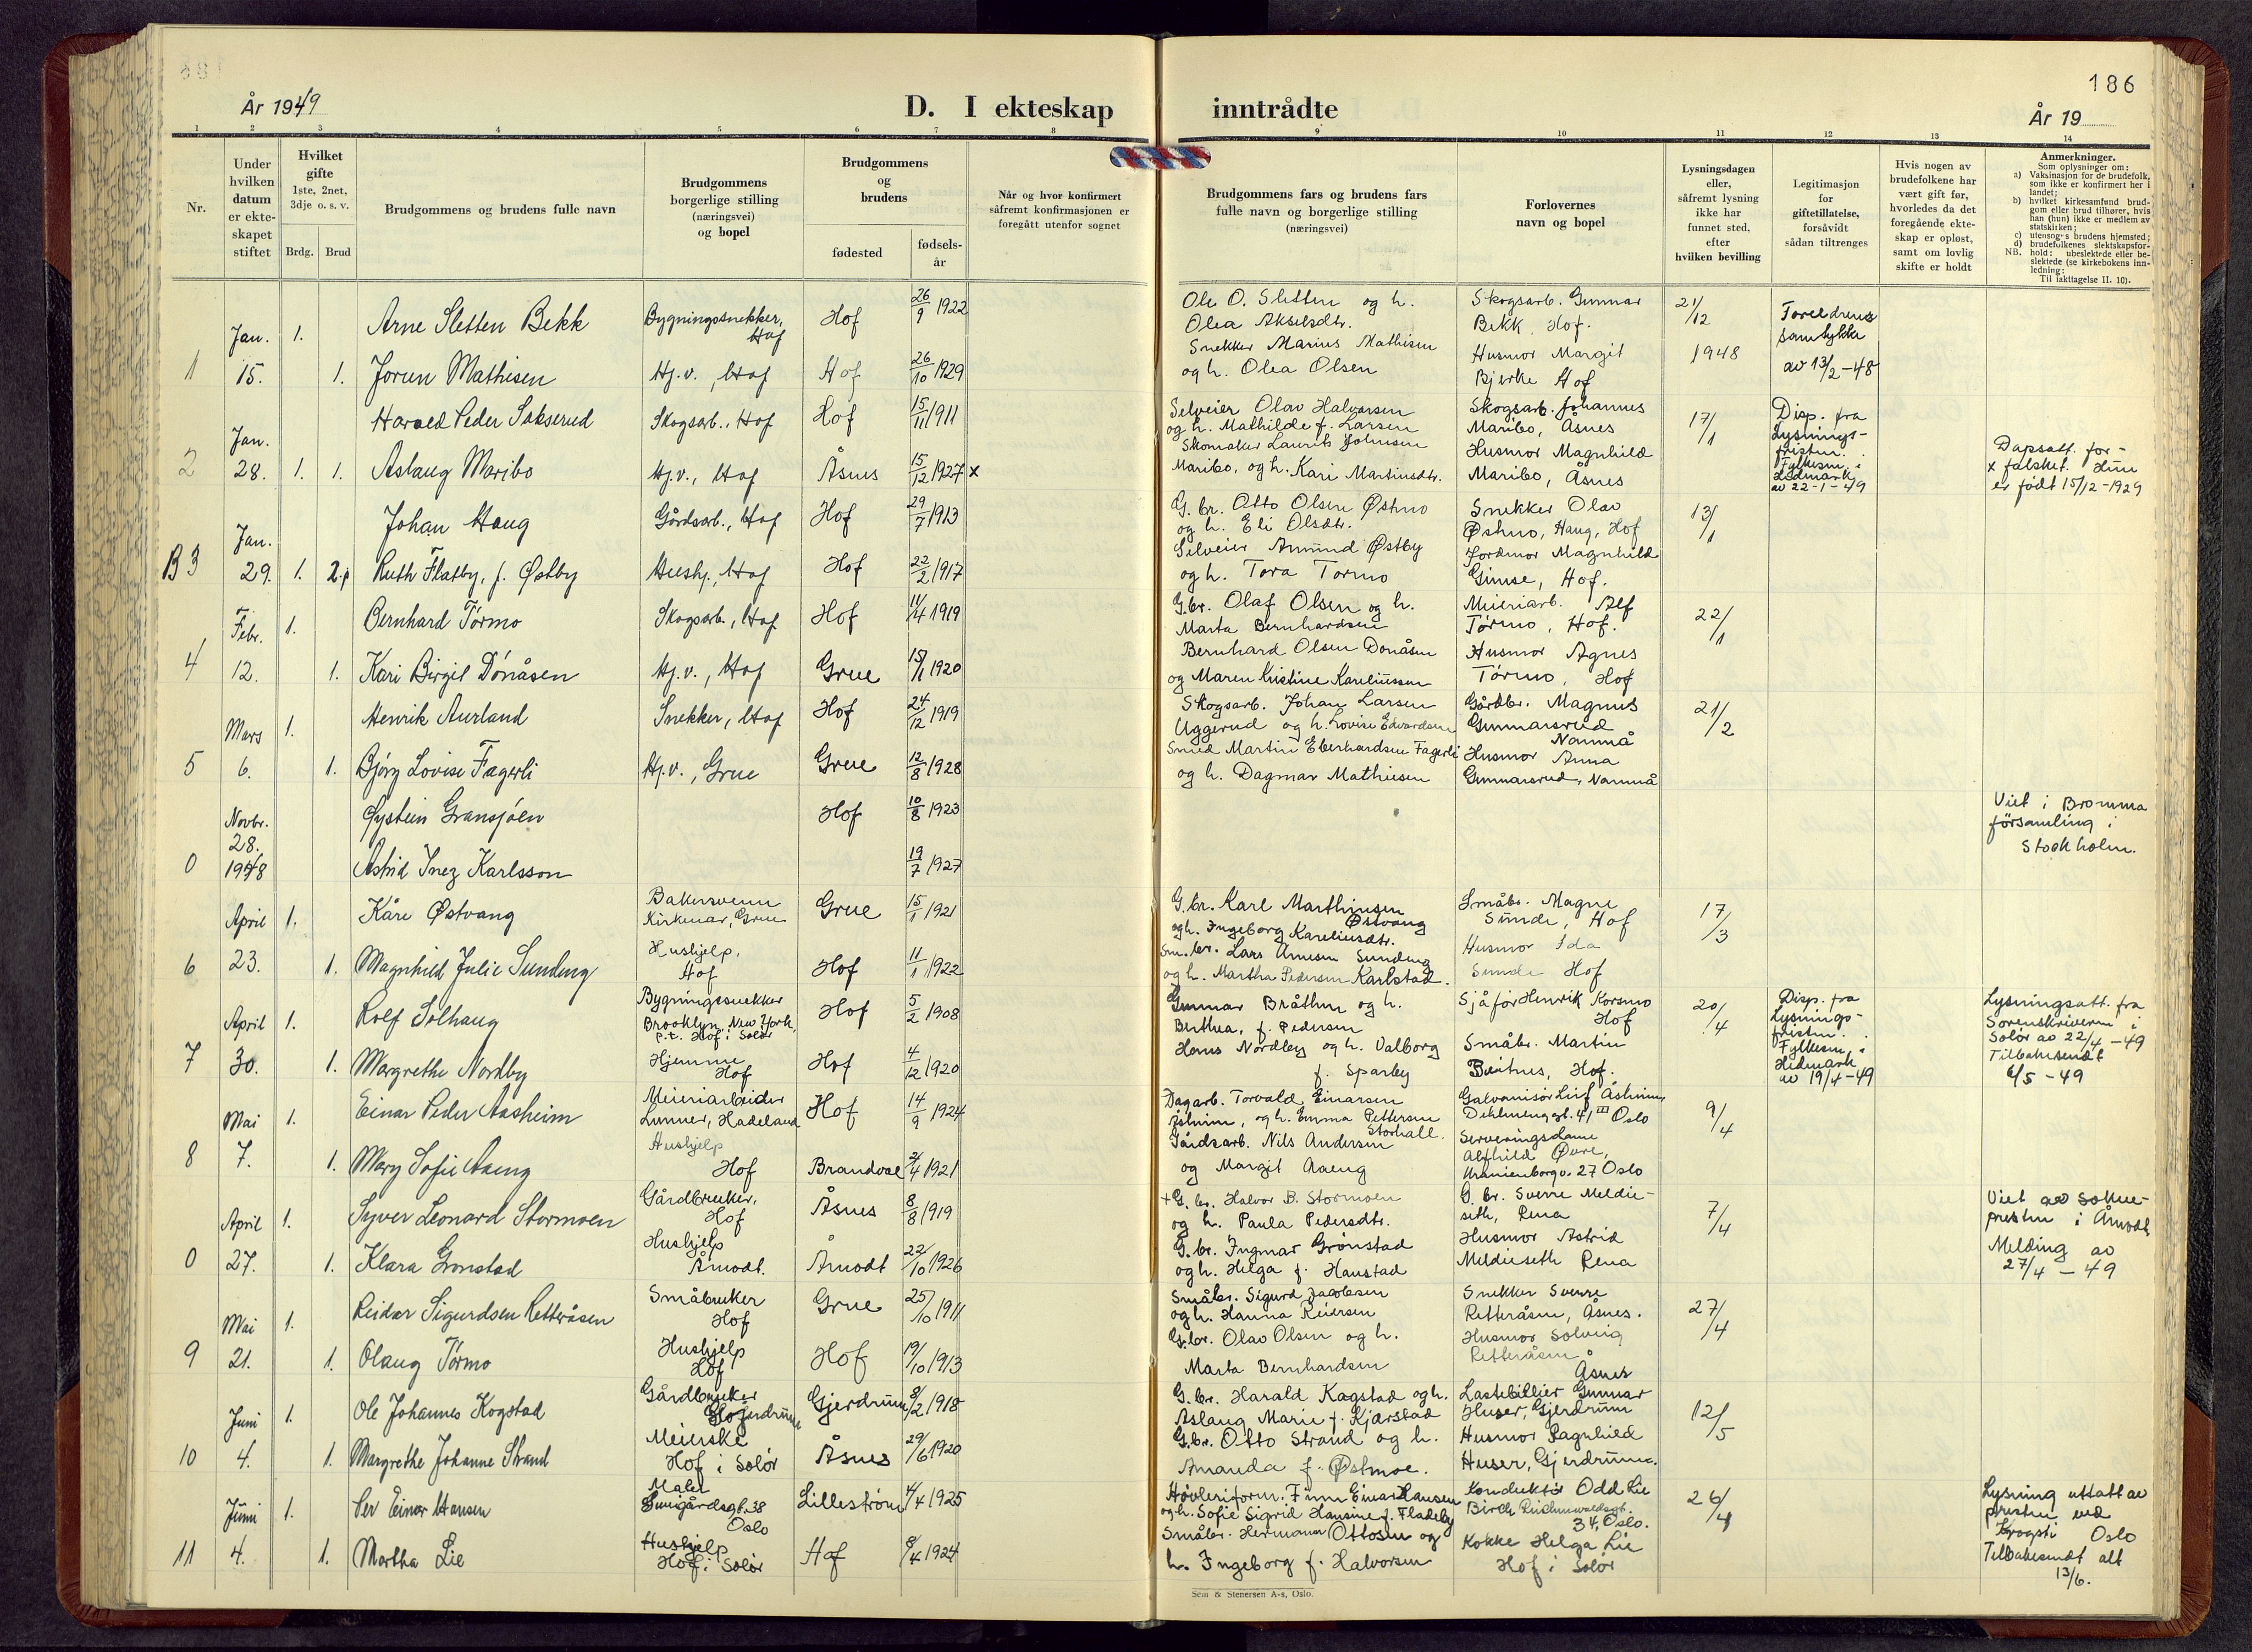 186
År 1949
D. I ekteskap
inntrådte
År 19
1 2 3 4 5 6 7 8 9 10 11 12 13 14
Nr.
Under
hvilken
datum
er ekte-
skapet
stiftet
Hvilket
gifte
1ste, 2net,
3dje o. s. v.
Brdg. Brud
Brudgommens og brudens fulle navn
Brudgommens
borgerlige stilling
(næringsvei)
og bopel
Brudgommens
og
brudens
fødested
fødsels-
år
Når og hvor konfirmert
såfremt konfirmasjonen er
foregått utenfor sognet
Brudgommens fars og brudens fars
fulle navn og borgerlige stilling
(næringsvei)
Forlovernes
navn og bopel
Lysningsdagen
eller,
såfremt lysning
ikke har
funnet sted,
efter
hvilken bevilling
Legitimasjon
for
giftetillatelse,
forsåvidt
sådan tiltrenges
Hvis nogen av
brudefolkene har
vært gift før,
hvorledes da det
foregående ekte-
skap er opløst,
samt om lovlig
skifte er holdt
Anmerkninger.
Som oplysninger om:
a) Vaksinasjon for de brudefolk,
som ikke er konfirmert her i
landet;
b) hvilket kirkesamfund brud-
gom eller brud tilhører, hvis
han (hun) ikke er medlem av
statskirken;
c) utensogns brudens hjemsted;
d) brudefolkenes slektskapsfor-
hold: ubeslektede eller be-
NB. slektede (se kirkebokens inn-
ledning:
Til iakttagelse II. 10).
1 Jan. 15.
1. Arne Sletten Bekk
Bygningssnekker, Hof
Hof 26/9 1922
Ole O. Sletten og h.
Olea Akselsdtr.
Skogsarb. Gunnar
Bekk, Hof.
21/12
1948
Foreldrenes
samtykke
av 13/2-48
1. Jorun Mathisen
Hj.v., Hof
Hof 26/10 1929
Snekker Marius Mathisen
og h. Olea Olsen
Husmor Margit
Bjerke Hof
2 Jan. 28.
1. Harald Peder Sakserud
Skogsarb., Hof
Hof 15/11 1911
Selveier Olav Halvorsen
og h. Mathilde f. Larsen
Skogsarb. Johannes
Maribo, Åsnes
17/1
Disp. fra
lysnings-
fristen.
Fylkesm. i
Hedmark
av 22-1-49
1. Aslaug Maribo
Hj.v., Hof
Åsnes 15/12 1927 x
Skomaker Laurits Johnsen
Maribo, og h. Kari Martinsdtr.
Husmor Magnhild
Maribo, Åsnes
Dåpsatt. for-
x falsket. Hun
er født 15/12-1929
B 3 Jan. 29.
1. Johan Haug
Gårdsarb., Hof
Hof 29/7 1913
G.br. Otto Olsen Østmo
og h. Eli Olsdtr.
Snekker Olav
Østmo, Haug, Hof
13/1
2. Ruth Flatby, f. Østby
Hushj., Hof
Hof 22/2 1917
Selveier Amund Østby
og h. Tora Tormo
Jordmor Magnhild
Gimse, Hof.
4 Febr. 12.
1. Bernhard Tormo
Skogsarb., Hof
Hof 11/4 1919
G.br. Olaf Olsen og h.
Marta Bernhardsen
Meieriarb. Alf
Tørmo, Hof.
22/1
1. Kari Birgit Dónåsen
Hj.v., Hof
Grue 15/1 1920
Bernhard Olsen Donåsen
og Maren Kristine Kareliussen
Husmor Agnes
Tørmo, Hof
5 Mars 6.
1. Henrik Aurland
Snekker, Hof
Hof 24/12 1919
Skogsarb. Johan Larsen
Uggerud og h. Lovise Edvardsen
Gårdbr. Magnus
Gunnarsrud
Namnå
21/2
1. Bjørg Lovise Fagerli
Hj.v., Grue
Grue 12/8 1928
Smed Martin Eberhardsen Fagerli
og h. Dagmar Mathiesen
Husmor Anna
Gunnarsrud, Namnå
0 Novbr. 28. 1948
Øystein Gransjøen
Hof 10/8 1923
Viet i Bromma
församling i
Stockholm.
Astrid Inez Karlsson
19/7 1927
6 April 23.
1. Kåre Østvang
Bakersvenn
Kirkenær, Grue
Grue 15/1 1921
G.br. Karl Marthinsen
Østvang
og h. Ingeborg Kareliusdtr.
Småbr. Magne
Sunde, Hof
17/3
1. Magnhild Julie Sundeng
Hushjelp,
Hof
Hof 11/1 1922
Sm.br. Lars Arnesen Sundeng
og h. Martha Pedersen Karlstad.
Husmor Ida
Sunde Hof
7 April 30.
1. Rolf Solhaug
Bygningssnekker
Brooklyn, New York,
p.t. Hof i Solør
Hof 5/2 1908
Gunnar Bråthen og h.
Berthea, f. Pedersen
Sjåfør Henrik Korsmo
Hof
20/4
Disp. fra
lysnings-
fristen.
Fylkesm. i
Hedmark
av 19/4-49
Lysningsatt. fra
Sorenskriveren i
Solør av 22/4-49
Tilbakesendt
6/5-49
1. Margrethe Nordby
Hjemme
Hof
Hof 4/12 1920
Hans Nordby og h. Valborg
f. Sparby
Småbr. Martin
Beitnes, Hof.
8 Mai 7.
1. Einar Peder Aasheim
Meieriarbeider
Lunner, Hadeland
Hof 14/9 1924
Dagarb. Torvald Einarsen
Åsheim, og h. Emma Pettersen
Storhall.
Galvanisør Leif Åsheim
Dæhlenengt. 41 III Oslo
9/4
1. Mary Sofie Aaeng
Hushjelp
Hof
Brandval 2/4 1921
Gårdsarb. Nils Andersen
og Margit Aaeng
Serveringsdame
Alfhild Øvre,
Uranienborgv. 27 Oslo
0 April 27.
1. Syver Leonard Stormoen
Gårdbruker,
Hof
Åsnes 8/8 1919
+ G.br. Halvor B. Stormoen
og h. Paula Pedersdtr.
G.br. Sverre Meldie-
seth, Rena
7/4
Viet av sokne-
presten i Åmodt
Melding av
27/4-49
1. Klara Gronstad
Hushjelp
Åmodt.
Åmodt 22/10 1926
G.br. Ingmar Grønstad
og h. Helga f. Hanstad
Husmor Astrid
Meldieseth Rena
9 Mai 21.
1. Reidar Sigurdsen Retteråsen
Småbruker
Hof
Grue 25/10 1911
Småbr. Sigurd Jacobsen
og h. Hanna Reiersen
Snekker Sverre
Retteråsen, Åsnes.
27/4
1. Olaug Tørmo
Hushjelp
Hof
Hof 19/10 1913
G.br. Olav Olsen og h.
Marta Bernhardsen
Husmor Solveig
Retteråsen
Åsnes
10 Juni 4.
1. Ole Johannes Kogstad
Gårdbruker
Gjerdrum
Gjerdrum 3/2 1918
G.br. Harald Kogstad og h.
Aslaug Marie f. Kjærstad
Lastebileier Gunnar
Huser, Gjerdrum
12/5
1. Margrethe Johanne Strand
Meierske
Hof i Solør
Åsnes 29/6 1920
G.br. Otto Strand og h.
Amanda f. Østmoe.
Husmor Ragnhild
Huser, Gjerdrum.
11 Juni 4.
1. Per Einar Hansen
Maler
38
Oslo
Lillestrøm 4/4 1925
Høvleriform. Finn Einar Hansen
og h. Sofie Sigrid Hansine f. Fladeby
Konduktør Odd Lie
Birch Reichenwaldsgt.
34, Oslo.
26/4
Lysning uttatt av
presten ved
Oslo
Tilbakesendt att
13/6.
1. Martha Lie
Hushjelp
Hof i Solør
Hof 8/4 1924
Småbr. Hermann Ottosen og
h. Ingeborg f. Halvorsen
Kokke Helga Lie
Hof i Solør
Sem & Stenersen A-s, Oslo.